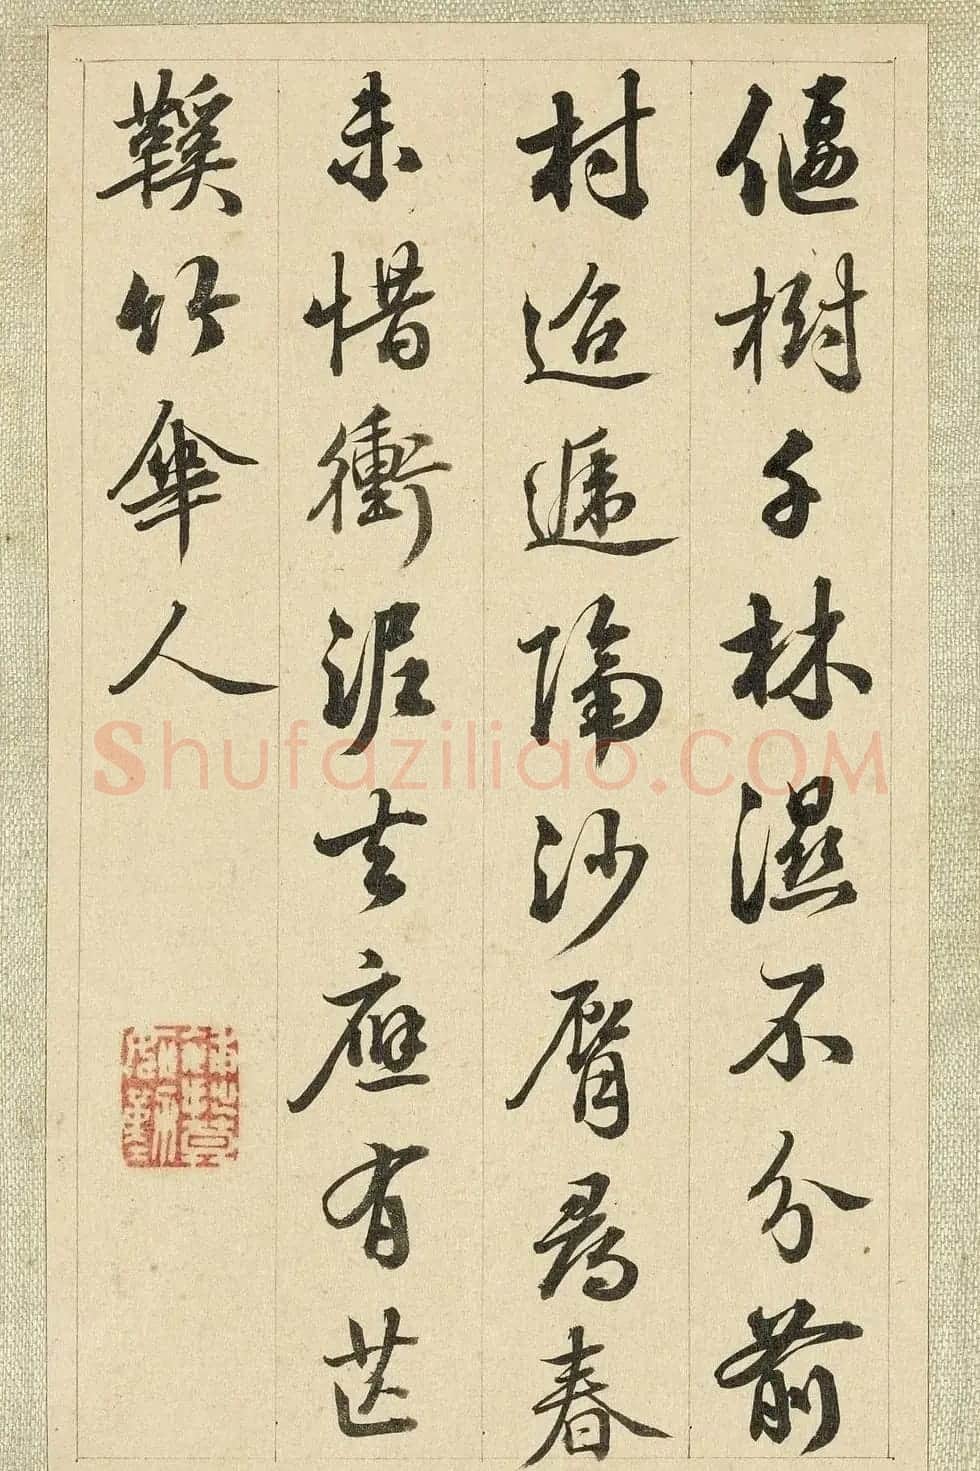 偃樹千林濕不分前
村迢遞隔沙脣尋春
未惜衝泥去應有芒
鞵竹傘人
Shufaziliao.COM